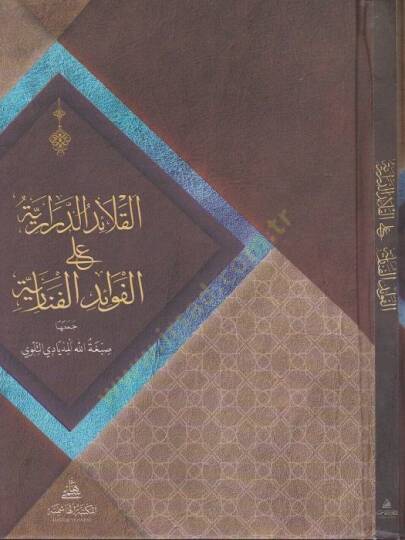 القلائد الدرارية
على
الفوائد الفنارية
جمعها
صبغة الله المديادي الثنوي
المكتبة الهاشمية
القلائد الدرارية على الفوائد الفنارية